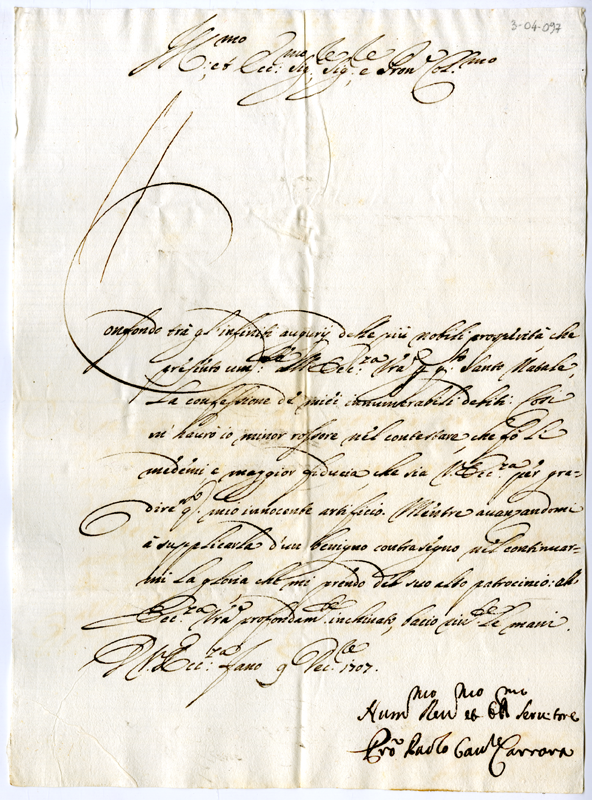 3-04-097
Ill.mo et Ecc.mo Sig.re Sig.re e Pron Col.mo
Confondo trà gl'infiniti augurij delle più nobili prosperità che
presento all'Ecc.za Vra p q.sto Santo Natale
La confessione de miei innumerabili debiti: Così
n'hauro io minor rossore nel contestare, che fò le
medemi e maggior fiducia che sia V. Ecc.za per gra-
dire q.to mio innocente artificio. Mentre auanzandomi
à supplicarla d'un benigno contrasegno nel continuar-
mi la gloria che mi prendo del suo alto patrocinio: all'
Ecc.za Vra profondam.te inchinato, bacio le mani.
D. V. Ecc.za Fano 9 Dec.bre 1707.
Hum.mo Deu.mo et Obl.mo Seruitore
Paolo Carrara